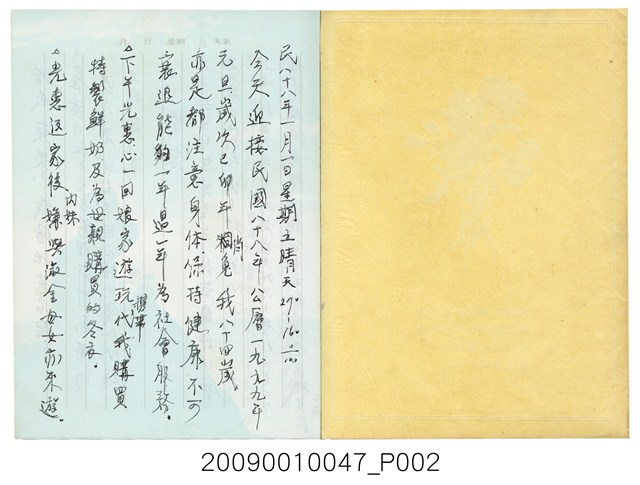 月 日 星期 天氣
民八十八年一月一日星期五晴天
今天迎接民國八十八年公曆一九九九年
元旦歲次己卯年肖兔我八十四歲
亦是都注意身体保持健康不可
衰退能夠一年過一年為社會服務。
下午光惠心一回娘家遊玩代我購買
攜帶
特製鮮奶及為母親購買的冬衣。
光惠返家後嫌與淑全母女亦來遊。
內妹
20090010047_P002